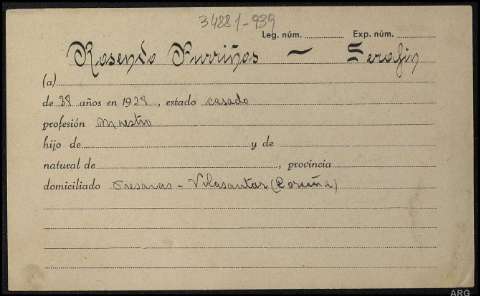 34881-939
Leg. núm. Exp. núm.
Rosendo Furriños — Serafin
(a)
de 38 años en 1938, estado casado
profesión Maestro
hijo de y de
natural de , provincia
domiciliado Présaras - Vilasantar (Coruña)
ARG